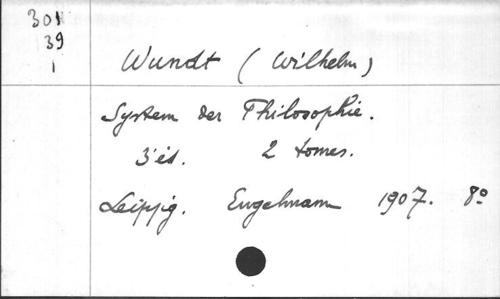 301
39
1
Wundt (Wilhelm)
System der Philosophie.
3 éd. 2 tomes.
Leipzig. Engelmann 1907. 8°